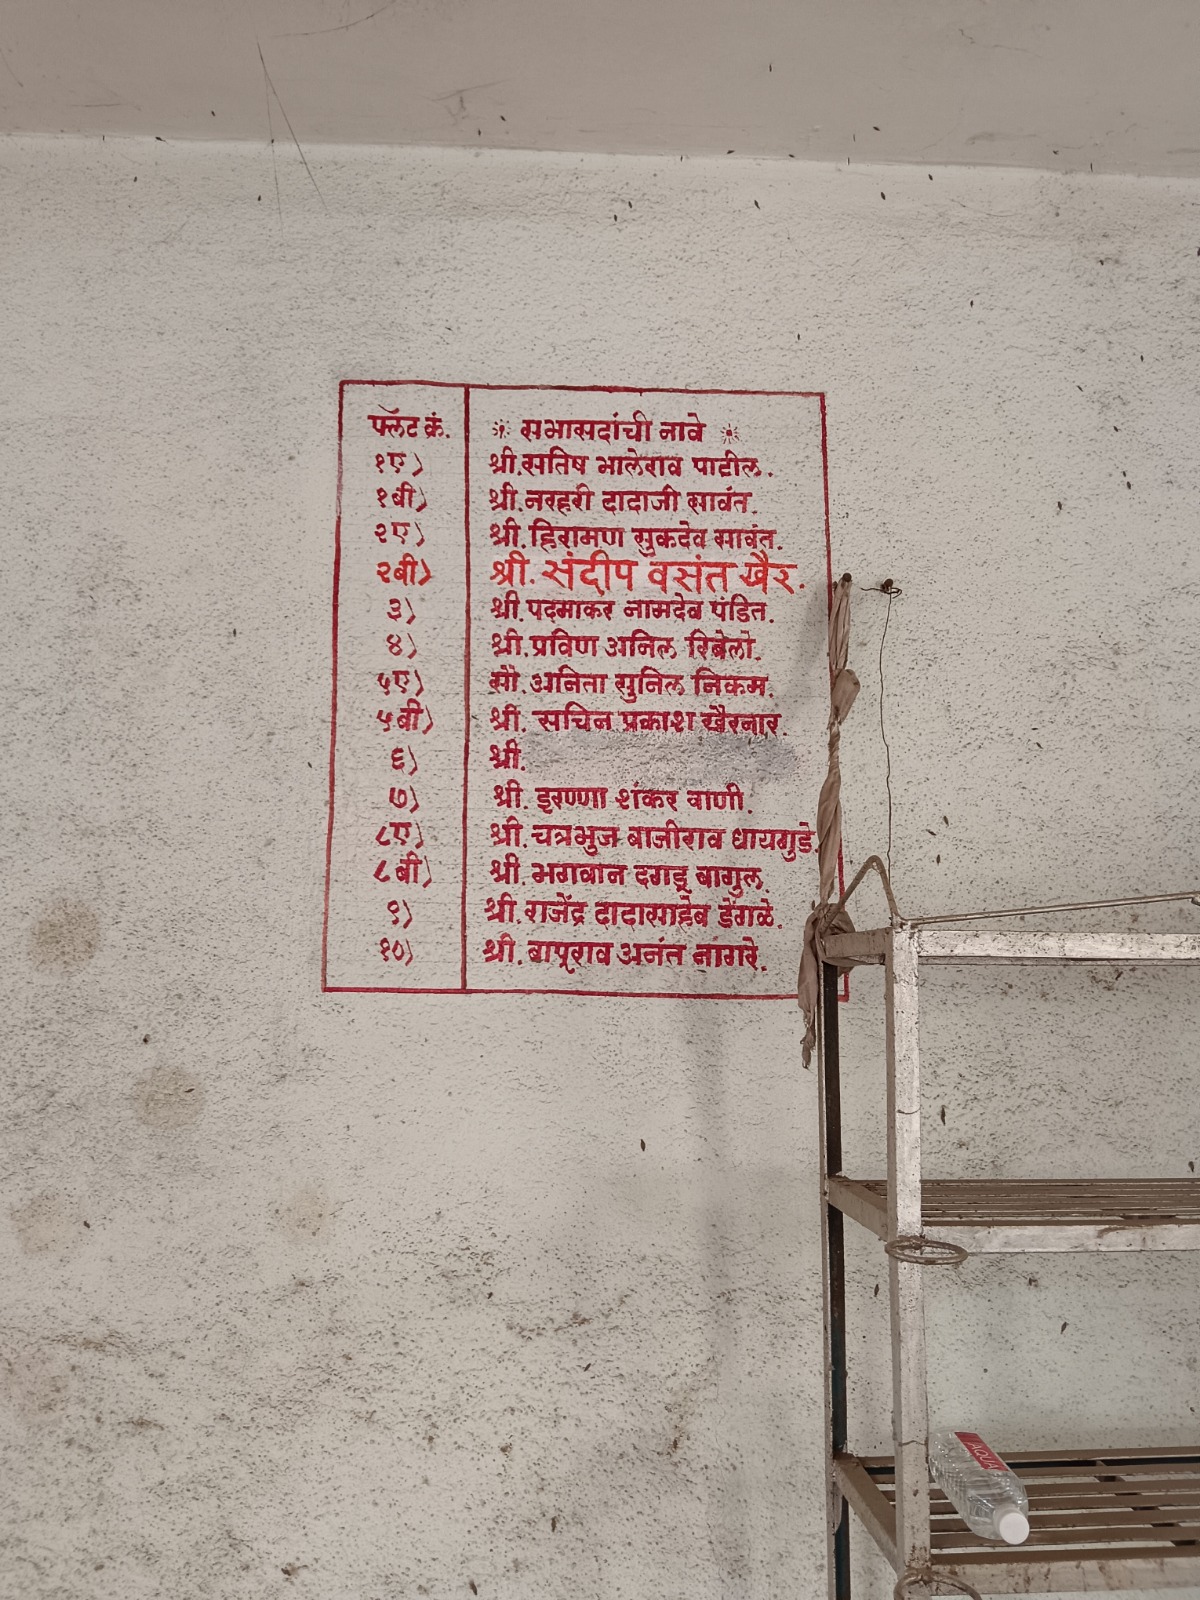 फ्लॅट क्रं. सभासदांची नावे
१ए) श्री. सतिष भालेराव पाटील.
१बी) श्री. नरहरी दादाजी सावंत.
२ए) श्री. हिरामण सुकदेव सावंत.
२बी) श्री. संदीप वसंत खैर.
३) श्री. पदमाकर नामदेव पंडित.
४) श्री. प्रविण अनिल रिबेलो.
५ए) सौ. अनिता सुनिल निकम.
५बी) श्री. सचिन प्रकाश खैरनार.
६) श्री.
७) श्री. इरण्णा शंकर वाणी.
८ए) श्री. चत्रभुज बाजीराव धायगुडे.
८बी) श्री. भगवान दगडू बागुल.
९) श्री. राजेंद्र दादासाहेब डेंगळे.
१०) श्री. बापूराव अनंत नागरे.
AQUA